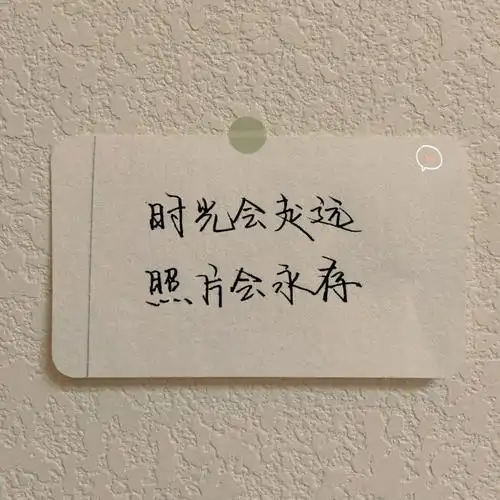 时光会走远
照片会永存